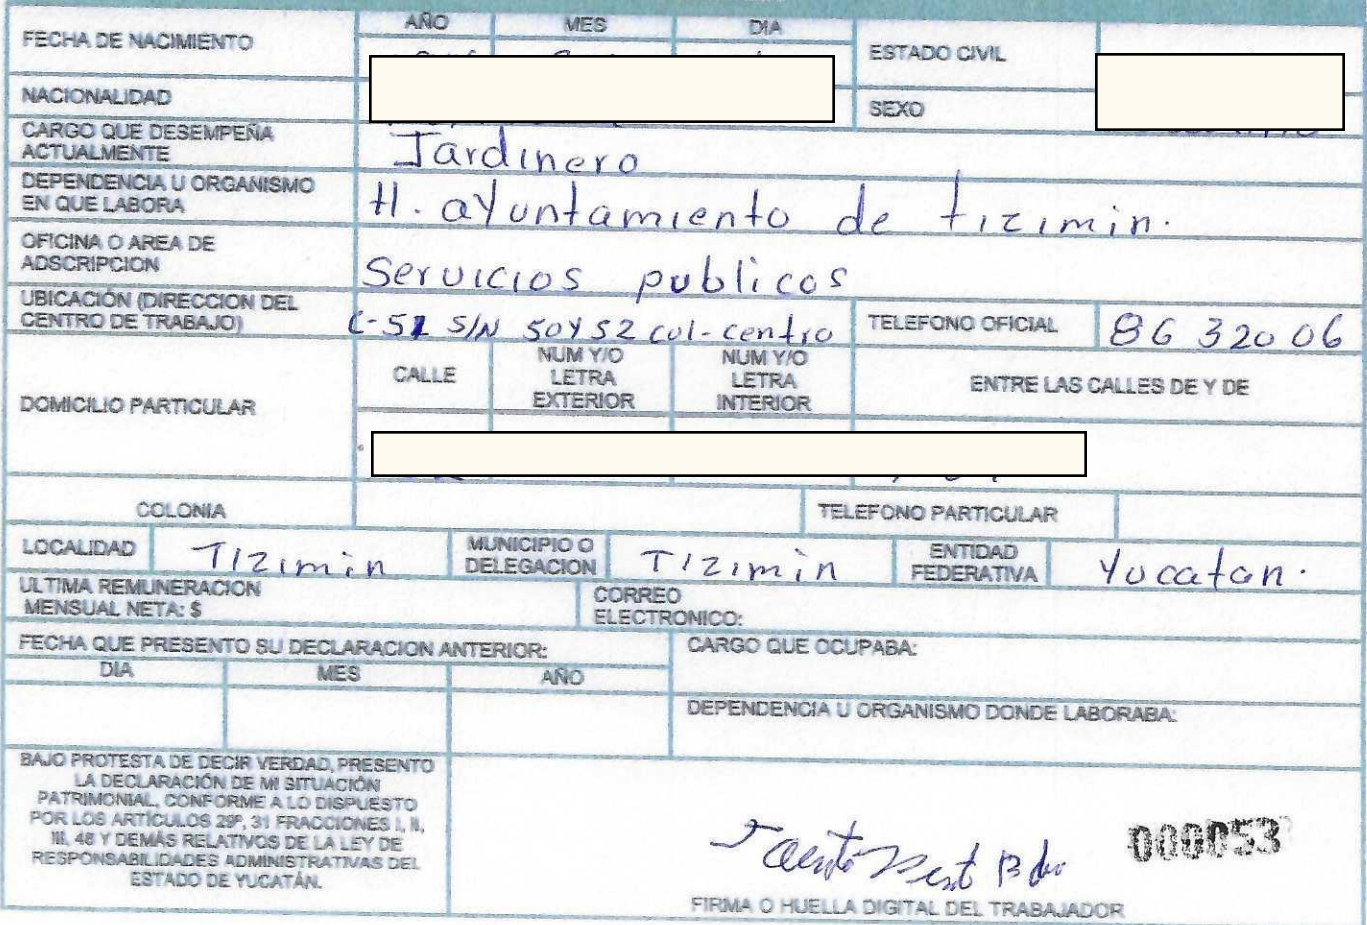 FECHA DE NACIMIENTO AÑO MES DIA ESTADO CIVIL
NACIONALIDAD SEXO
CARGO QUE DESEMPEÑA
ACTUALMENTE Jardinero
DEPENDENCIA U ORGANISMO
EN QUE LABORA H. aYuntamiento de tizimin.
OFICINA O AREA DE
ADSCRIPCION Servicios publicos
UBICACIÓN (DIRECCION DEL
CENTRO DE TRABAJO) C-51 S/N 50 Y 52 col-centro TELEFONO OFICIAL 86 320 06
DOMICILIO PARTICULAR
CALLE
NUM Y/O
LETRA
EXTERIOR
NUM Y/O
LETRA
INTERIOR
ENTRE LAS CALLES DE Y DE
COLONIA TELEFONO PARTICULAR
LOCALIDAD TIzimin
MUNICIPIO O
DELEGACION TIzimin
ENTIDAD
FEDERATIVA Yucatan.
ULTIMA REMUNERACION
MENSUAL NETA: $
CORREO
ELECTRONICO:
FECHA QUE PRESENTO SU DECLARACION ANTERIOR:
DIA MES AÑO
CARGO QUE OCUPABA:
DEPENDENCIA U ORGANISMO DONDE LABORABA:
BAJO PROTESTA DE DECIR VERDAD, PRESENTO
LA DECLARACIÓN DE MI SITUACIÓN
PATRIMONIAL, CONFORME A LO DISPUESTO
POR LOS ARTÍCULOS 29º, 31 FRACCIONES I, II,
III, 48 Y DEMÁS RELATIVOS DE LA LEY DE
RESPONSABILIDADES ADMINISTRATIVAS DEL
ESTADO DE YUCATÁN.
000053
FIRMA O HUELLA DIGITAL DEL TRABAJADOR